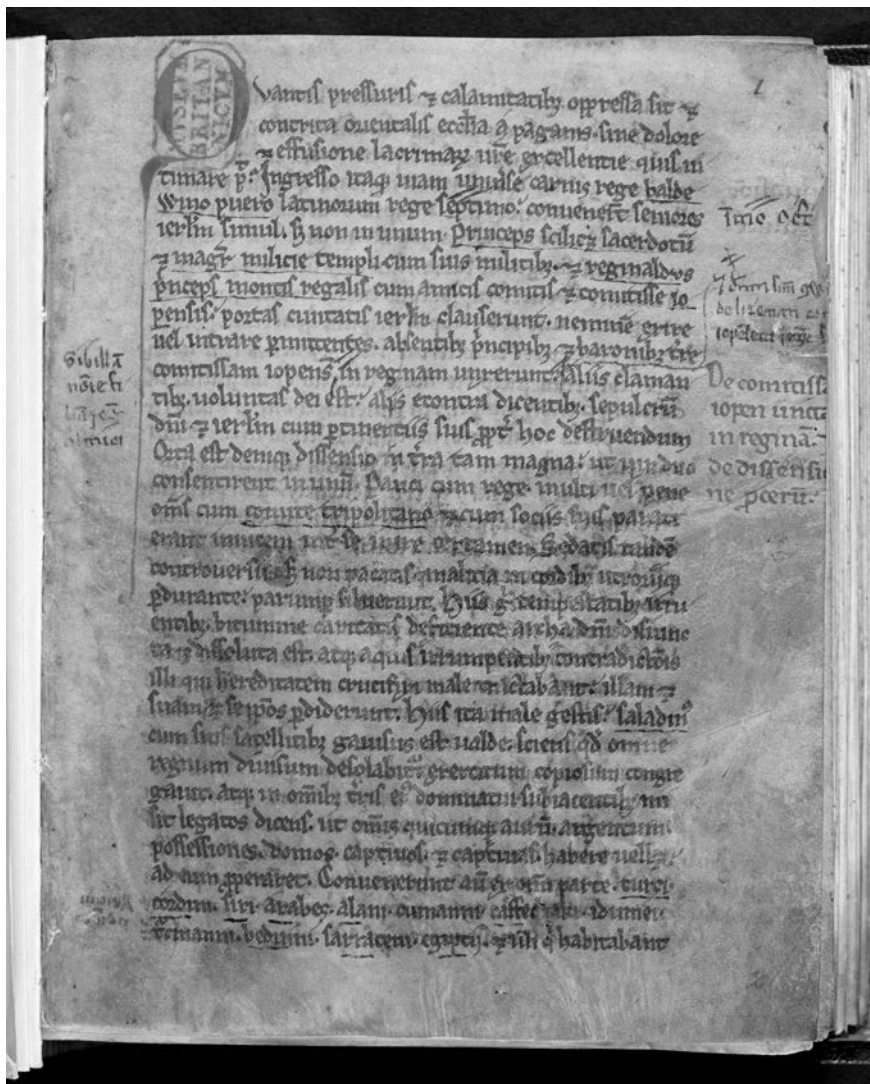 MVSEVM BRITANNICVM
1
Quantis pressuris ⁊ calamitatibꝫ oppressa sit ⁊
contrita orientalis eccl̄ia a paganis. sine dolore
⁊ effusione lacrimaꝝ ur̄e excellentie quis in
timare p̄t. Ingresso itaqꝫ uiam uniuerse carnis rege balde
wino puero latinorum rege septimo. conueneŕt seniores
ierlm̄ simul. sꝫ non in unum. Princeps scilicꝫ sacerdotū
⁊ magr̄ milicie templi cum suis militibꝫ. ⁊ reginaldus
p̄nceps montis regalis cum amicis comitis ⁊ comitisse io
pensis. portas ciuitatis ierlm̄ clauserunt. neminē exire
uel intrare ꝑmittentes. absentibꝫ p̄ncipibꝫ ⁊ baronibꝫ tr̄e
comitissam iopens̄ in reginam unxerunt. aliis claman
tibꝫ. uoluntas dei est. aliis econtra dicentibꝫ. sepulcrū
dn̄i ⁊ ierlm̄ cum ꝑtinentiis suis ꝓpt̄ hoc destruendum
Orta est deniqꝫ dissensio in tr̄a tam magna. ut uix duo
consentirent in unū. Pauci cum rege. multi uel pene
om̄s cum comite tripolitano ⁊ cum sociis suis parati
erant inuicem int̄ se inire certamen. Sedatis tandē
controuersiis sꝫ non pacatis. malicia in cordibꝫ utroꝝqꝫ
ꝑdurante. parumꝑ siluerunt. Hiis g̊ tempestatibꝫ irru
entibꝫ. bitumine caritatis deficiente archa dn̄i disiunc
ta ⁊ dissoluta est. atqꝫ aquis irrumpentibꝫ contradictōis
illi qui hereditatem crucifixi male tractabant. illam ⁊
suam ⁊ se ip̄os ꝑdiderunt. Hiis ita male gestis. saladinꝰ
cum suis satellitibꝫ gauisus est ualde. sciens qd̄ omne
regnum diuisum desolabit᷑. exercitum copiosum congre
gauit. atqꝫ in om̄ibꝫ tr̄is eiꝰ dominatui subiacentibꝫ mi
sit legatos dicens. ut om̄is quicumqꝫ aurū. argentum.
possessiones. domos. captiuos. ⁊ captiuas. habere uellꝫ.
ad eum ꝓperaret. Conuenerunt aū ex om̄i parte. turci.
cordini. siri. arabes. alani. cumanni. idumei.
t̄cmanni. beduini. sarraceni. egiptii. ⁊ illi q̄ habitabant
Sibillā
noīe fi
De comitissa
iopen̄ uncta
in reginā.
de dissensi
ne ꝓcerū.